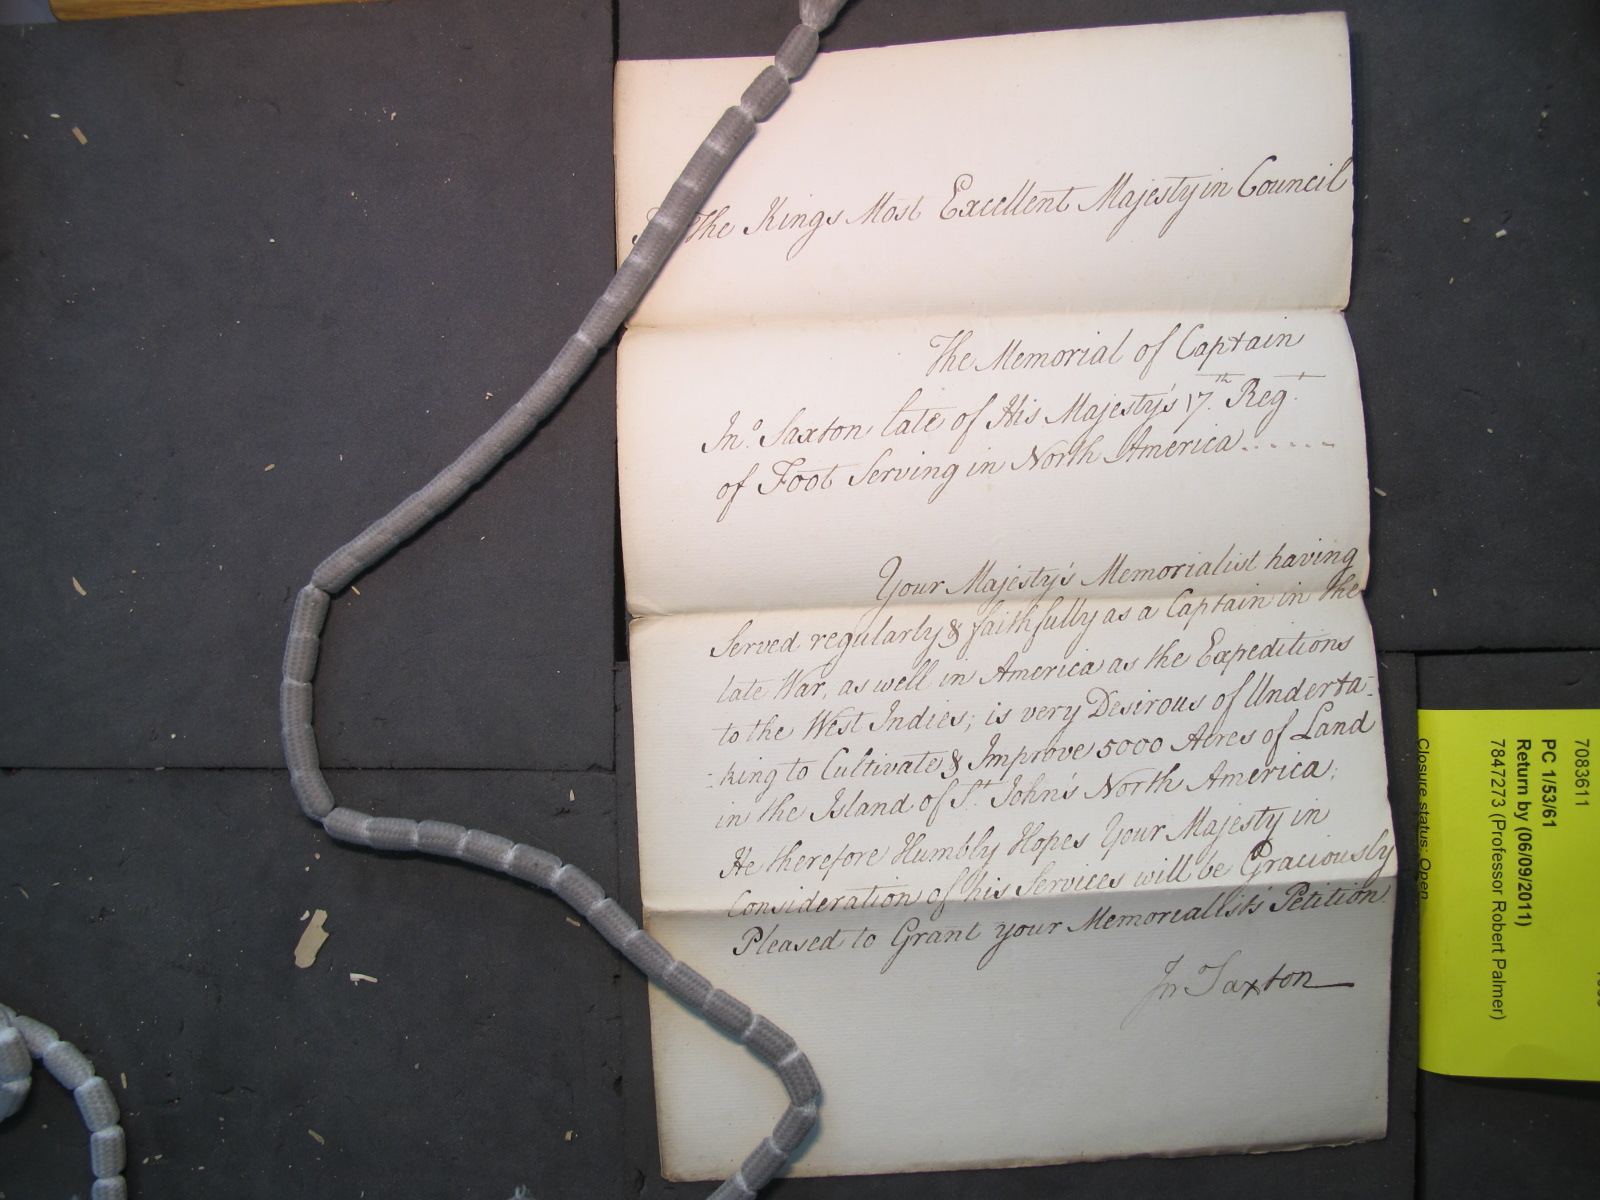 The Kings Most Excellent Majesty in Council
The Memorial of Captain
Jnº. Saxton late of His Majesty's 17.th Reg.t
of Foot Serving in North America......
Your Majesty's Memorialist having
Served regularly & faithfully as a Captain in the
late War, as well in America as the Expeditions
to the West Indies; is very Desirous of Underta=
=king to Cultivate & Improve 5000 Acres of Land
in the Island of S.t John's North America;
He therefore Humbly Hopes Your Majesty in
Consideration of his Services will be Graciously
Pleased to Grant your Memoriallist's Petition.
Jnº Saxton
7083611
PC 1/53/61
Return by (06/09/2011)
7847273 (Professor Robert Palmer)
Closure status: Open